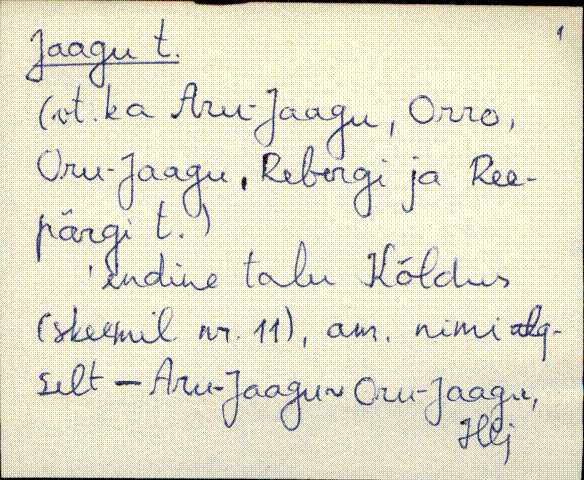 1
Jaagu t.
(vt. ka Aru-Jaagu, Orro,
Oru-Jaagu, Rebergi ja Ree-
pärgi t.)
'endine talu Kõldus
(skeemil nr. 11), am. nimi alg-
selt – Aru-Jaagu ~ Oru-Jaagu,
Hlj